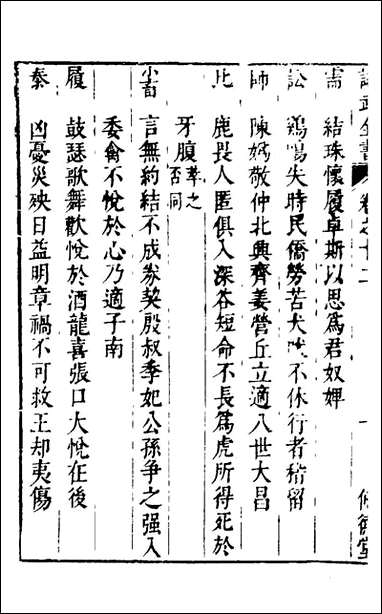 需 結珠懷履卑斯以思爲君奴婢
訟 鷄鳴失時民僑勞苦犬吠不休行者稽留
師 陳嬀敬仲兆興齊姜營丘立適八世大昌
比 鹿畏人匿俱入深谷短命不長爲虎所得死於
牙腹萃之否同
小畜 言無約結不成券契殷叔季妃公孫爭之强入
委禽不悅於心乃適子南
履 鼓瑟歌舞歡悅於酒龍喜張口大悅在後
泰 凶憂災殃日益明章禍不可救王却夷傷
卷之十二 一